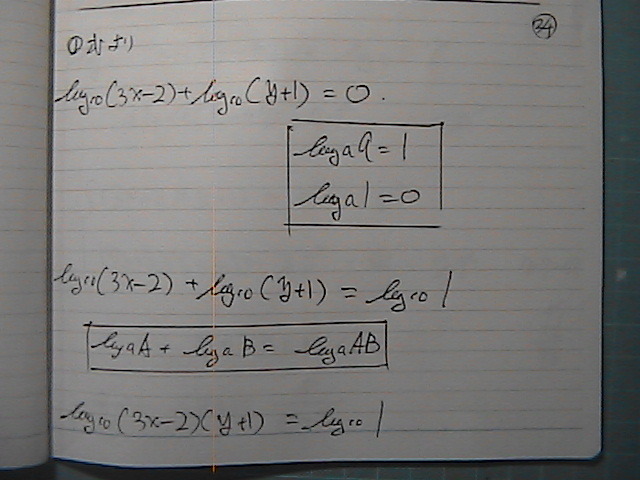 24
①式より
log₁₀(3x-2)+log₁₀(y+1)=0.
logₐa=1
logₐ1=0
log₁₀(3x-2)+log₁₀(y+1)=log₁₀1
logₐA+logₐB=logₐAB
log₁₀(3x-2)(y+1)=log₁₀1